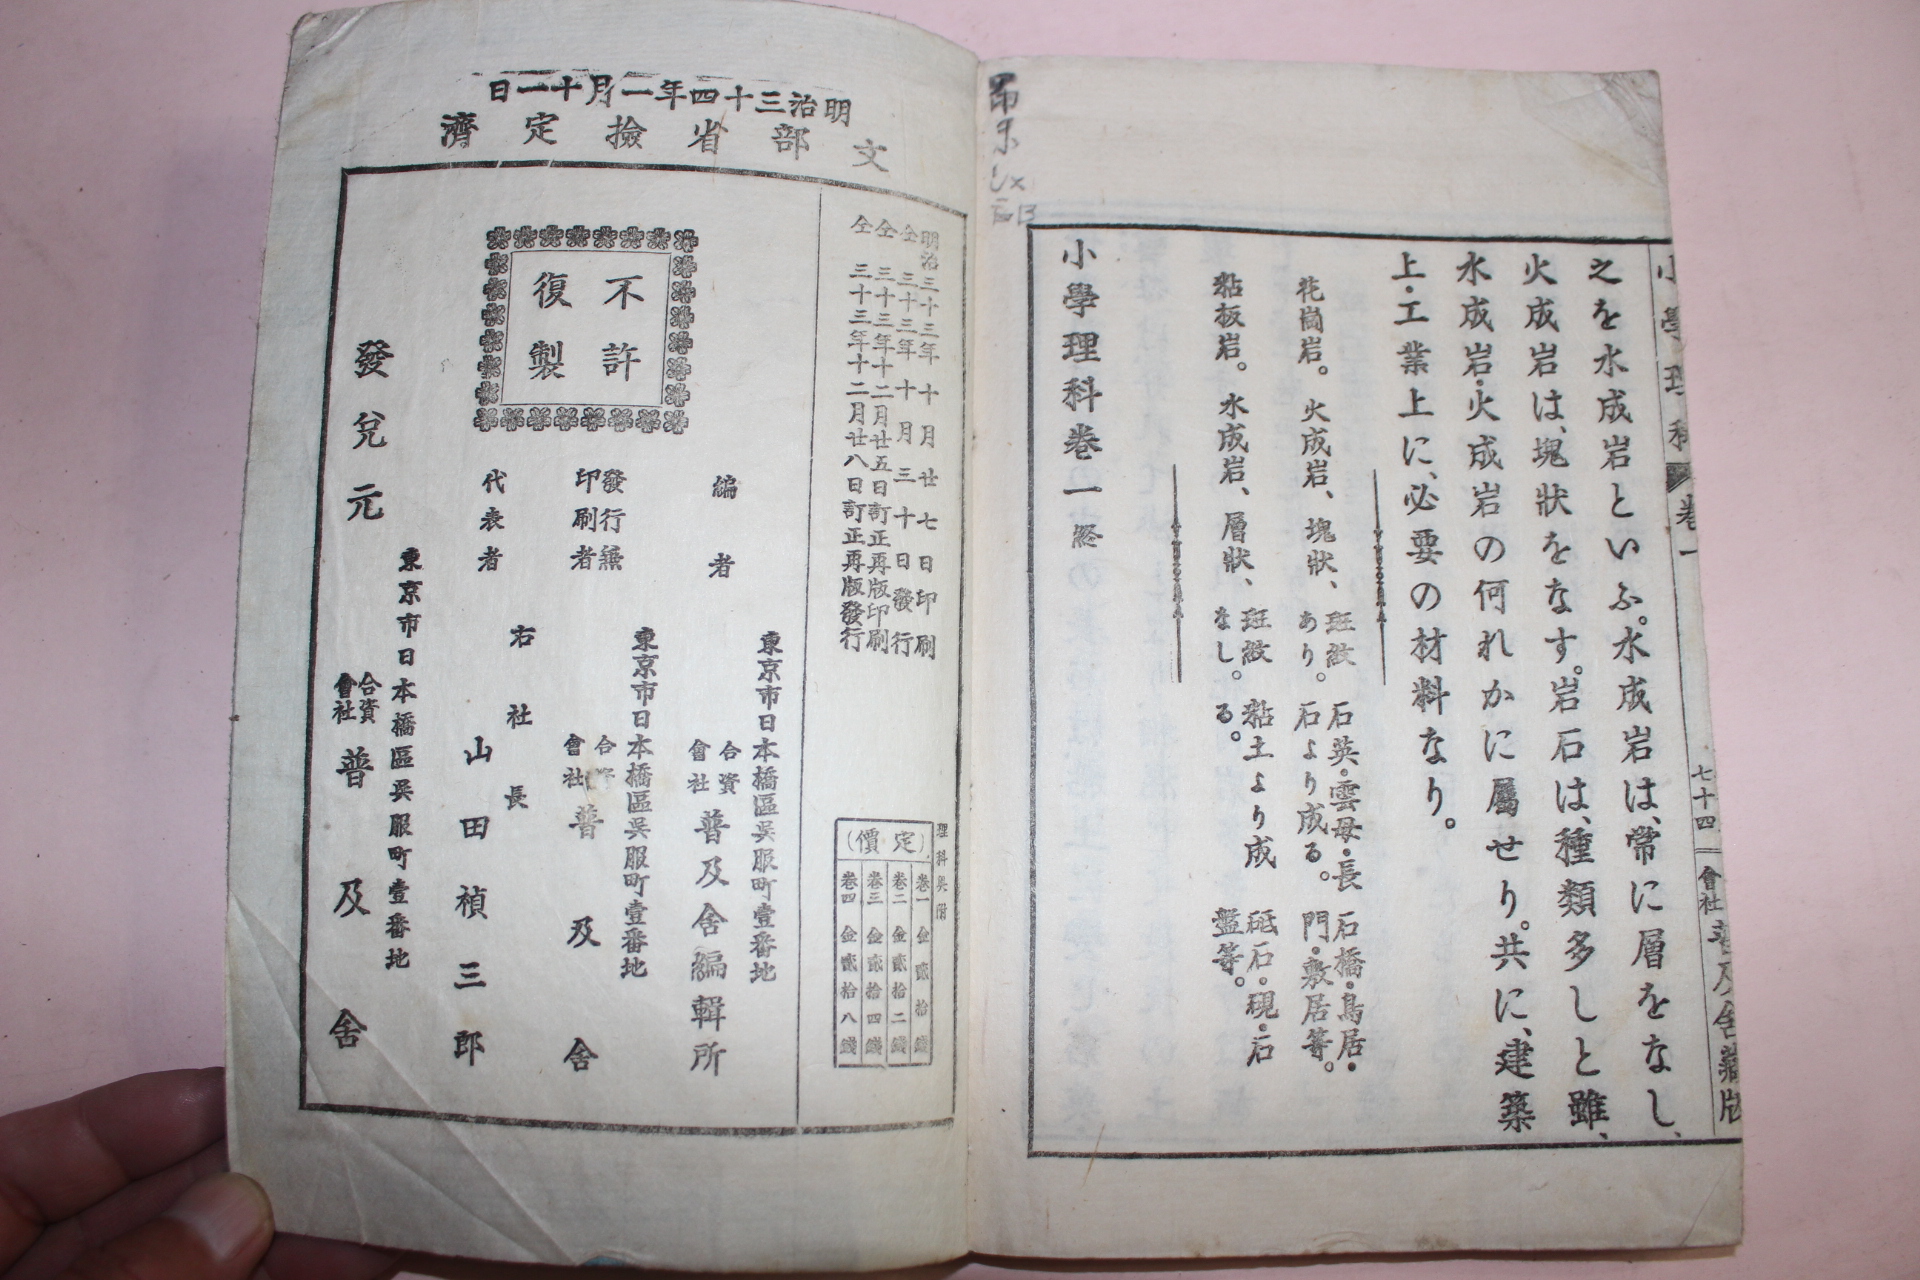 小學理科
卷一
七十四
會社
普及舍藏版
之を水成岩といふ。水成岩は、常に層をなし、
火成岩は、塊狀をなす。岩石は、種類多しと雖、
水成岩・火成岩の何れかに屬せり。共に、建築
上・工業上に、必要の材料なり。
花崗岩。火成岩、塊狀、斑紋あり。石英・雲母・長石より成る。石橋・鳥居・門・敷居等。
粘板岩。水成岩、層狀、斑紋なし。粘土より成る。砥石・硯・石盤等。
小學理科卷一終
明治三十四年一月十一日
文部省檢定濟
明治三十三年十月廿七日印刷
仝三十三年十月三十日發行
仝三十三年十二月廿五日訂正再版印刷
仝三十三年十二月廿八日訂正再版發行
理科與附
(定價)
卷一金貳拾錢
卷二金貳拾二錢
卷三金貳拾四錢
卷四金貳拾八錢
不許
復製
東京市日本橋區吳服町壹番地
編者
合資會社普及舍編輯所
東京市日本橋區吳服町壹番地
發行兼印刷者
合資會社普及舍
右社長
代表者
山田禎三郎
東京市日本橋區吳服町壹番地
發兌元
合資會社普及舍